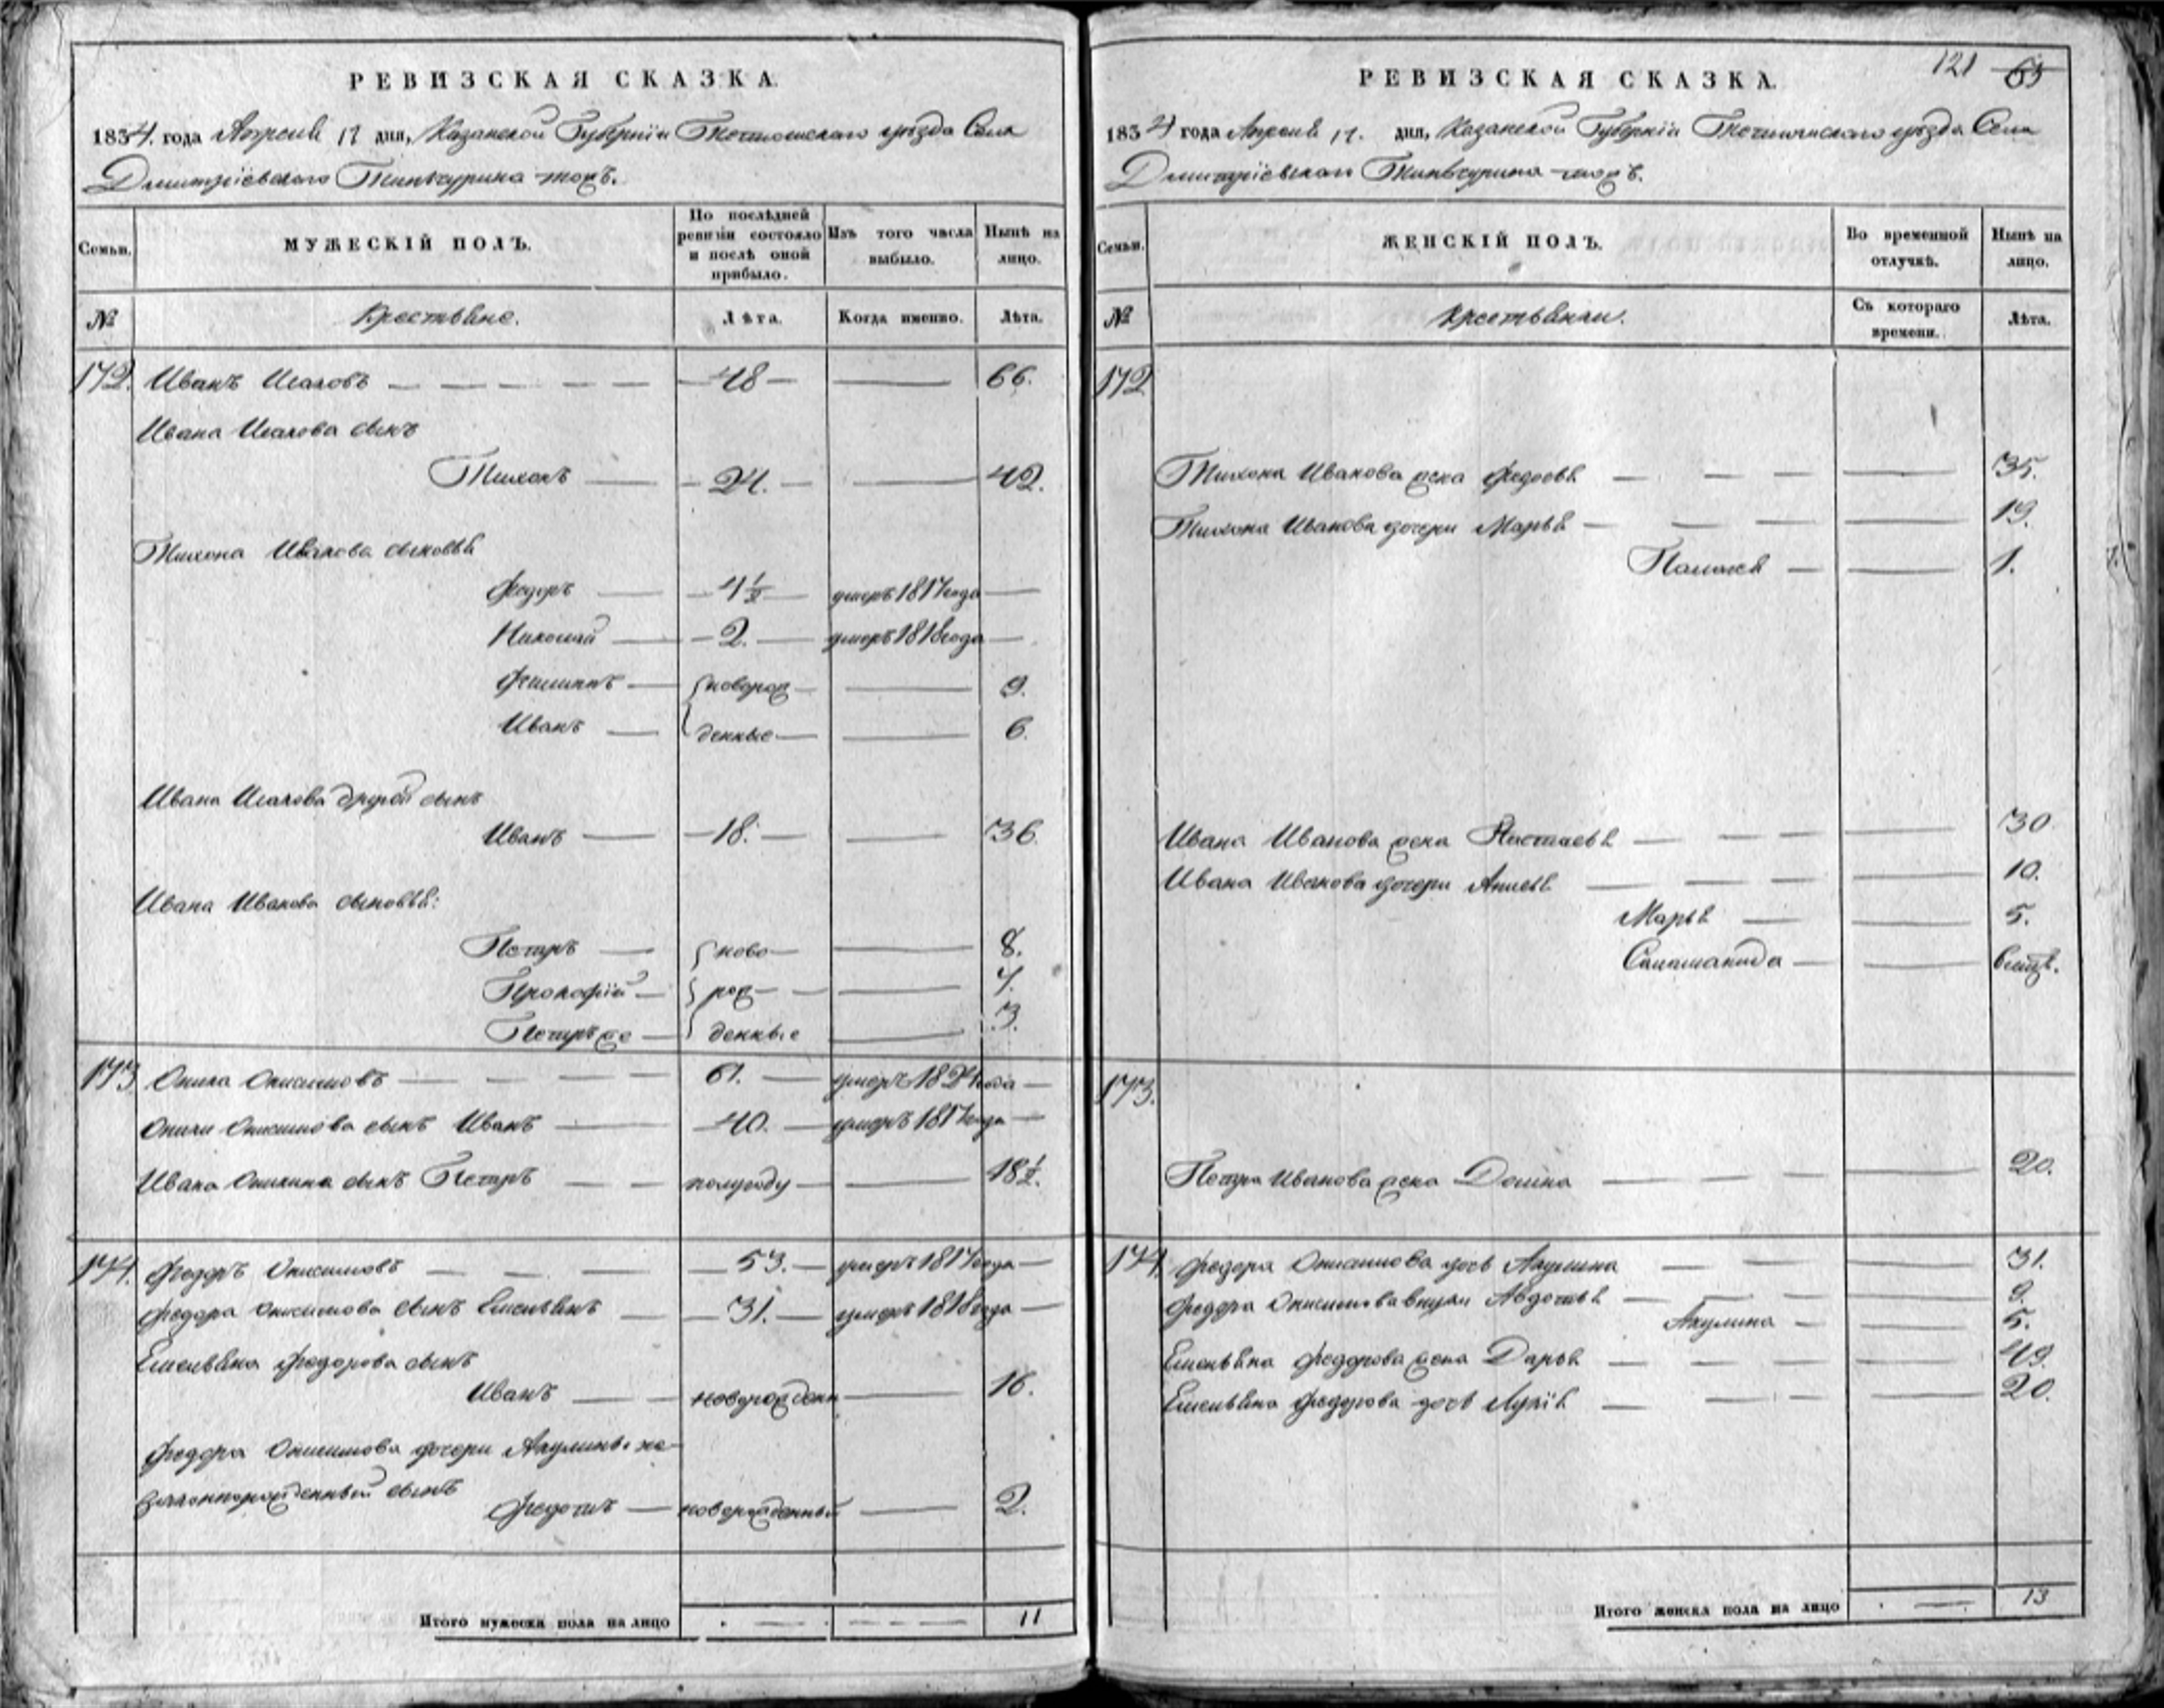 РЕВИЗСКАЯ СКАЗКА.
1834. года Апреля 17 дня, Казанской Губернiи Тетюшскаго уѣзда Села
Дмитрiевскаго Тинчурина тожъ.
Семьи.
МУЖЕСКIЙ ПОЛЪ.
По послѣдней ревизiи состояло и послѣ оной прибыло.
Изъ того числа выбыло.
Нынѣ на лицо.
№
Крестьяне.
Лѣта.
Когда именно.
Лѣта.
172. Иванъ 48 66.
Ивана сынъ
Тихонъ 24. 42.
Тихона Иванова сыновья
Федоръ 4½ умеръ 1817 года
Николай 2. умеръ 1818 года
Филиппъ новорож 9.
Иванъ денные 6.
Ивана другой сынъ
Иванъ 18. 36.
Ивана Иванова сыновья:
Петръ ново 8.
Прокофiй рож 4.
Петръ же денные 3.
173 Онисимовъ 61. умеръ 1824 года
Онисимова сынъ Иванъ 40. умеръ 1817 года
Ивана сынъ Петръ полугоду 18½.
174. Федоръ Онисимовъ 53. умеръ 1817 года
Федора Онисимова сынъ Емельянъ 31. умеръ 1818 года
Емельяна Федорова сынъ
Иванъ новорожденн 16.
Федора Онисимова дочери Акулины не-
законнорожденный сынъ
Федотъ новорожденный 2.
Итого мужеска пола на лицо 11
121 63
РЕВИЗСКАЯ СКАЗКА.
1834 года Апреля 17. дня, Казанской Губернiи Тетюшскаго уѣзда Села
Дмитрiевскаго Тинчурина тожъ.
Семьи.
ЖЕНСКIЙ ПОЛЪ.
Во временной отлучкѣ.
Нынѣ на лицо.
№
Крестьянки.
Съ котораго времени.
Лѣта.
172
Тихона Иванова жена Федосья 35.
Тихона Иванова дочери Марья 19.
1.
Ивана Иванова жена Настасья 30.
Ивана Иванова дочери Анисья 10.
Марья 5.
Саламанида 6 мѣся.
173.
Петра Иванова жена Домна 20.
174. Федора Онисимова дочь Акулина 31.
Федора Онисимова внуки Авдотья 9.
Акулина 5.
Емельяна Федорова жена Дарья 49.
Емельяна Федорова дочь 20.
Итого женска пола на лицо 13